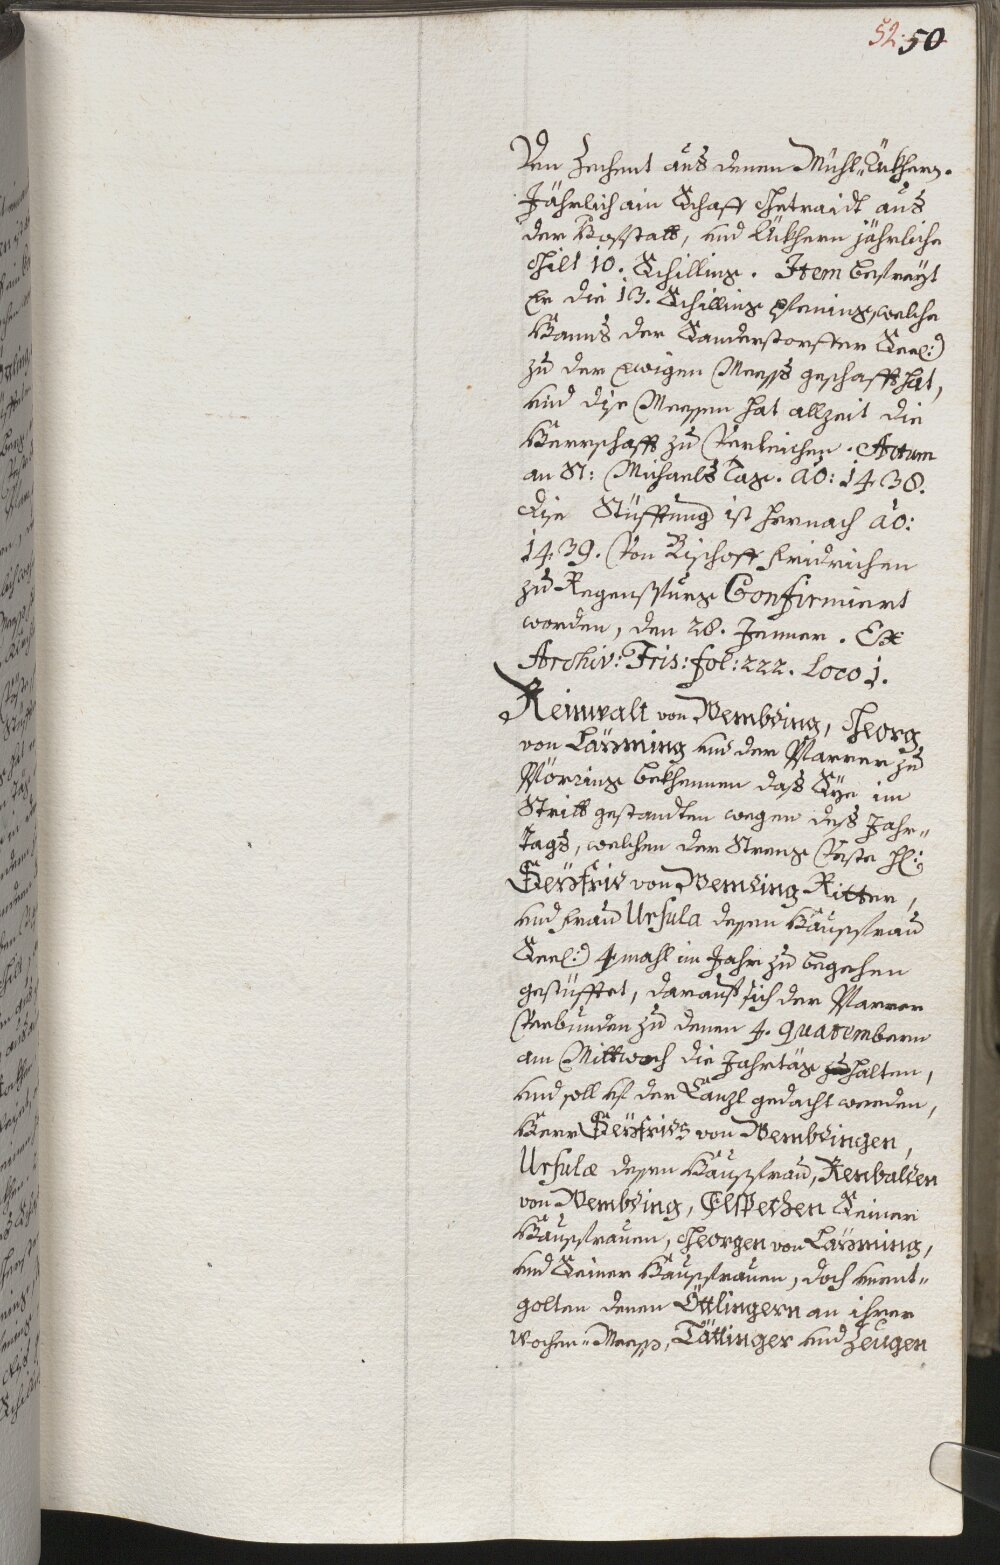 52. 50
Den Zechent aus denen Mühl-Äkhern.
Jährlich ain Schaff Getraidt aus
der Hofstatt, und Äkhern jährliche
Gilt 10. Schilling. Item befreyt
Er die 13. Schilling Pfening, welche
Hanns der Sandersdorffer Seel:
zu der ewigen Mesß geschafft hat,
und dise Messen hat allzeit die
Herrschafft zu Verleichen. Actum
an St: Michaels Tag. ao: 1438.
Dise Stüfftung ist hernach ao:
1439. Von Bischoff Fridrichen
zu Regenspurg Confirmiert
worden, den 28. Jenner. Ex
Archiv: Fris: fol: 222. Loco 1.
Reinwalt von Wembding, Georg
von Läyming und der Pfarrer zu
Pförring bekhennen daß Sye im
Stritt gestandten wegen deß Jahr-
Tags, welchen der Streng Veste H:
Seyfrid von Wemding Ritter,
und Frau Ursula dessen Haussfrau
Seel: 4 mahl im Jahr zu begehen
gestüfftet, darauf sich der Pfarrer
Verbunden zu denen 4. Quatembern
am Mittwoch die Jahrtäg zuhalten,
und soll uf der Canzl gedacht werden,
Herr Seyfrids von Wembdingen,
Ursulæ dessen Haussfrau, Renbalden
von Wembding, Elspethen Seiner
Haussfrauen, Georgen von Läyming,
und Seiner Haussfrauen, doch unent-
golten denen Öttlingern an ihrer
Wochen-Mesß, Tättinger und Zeugen